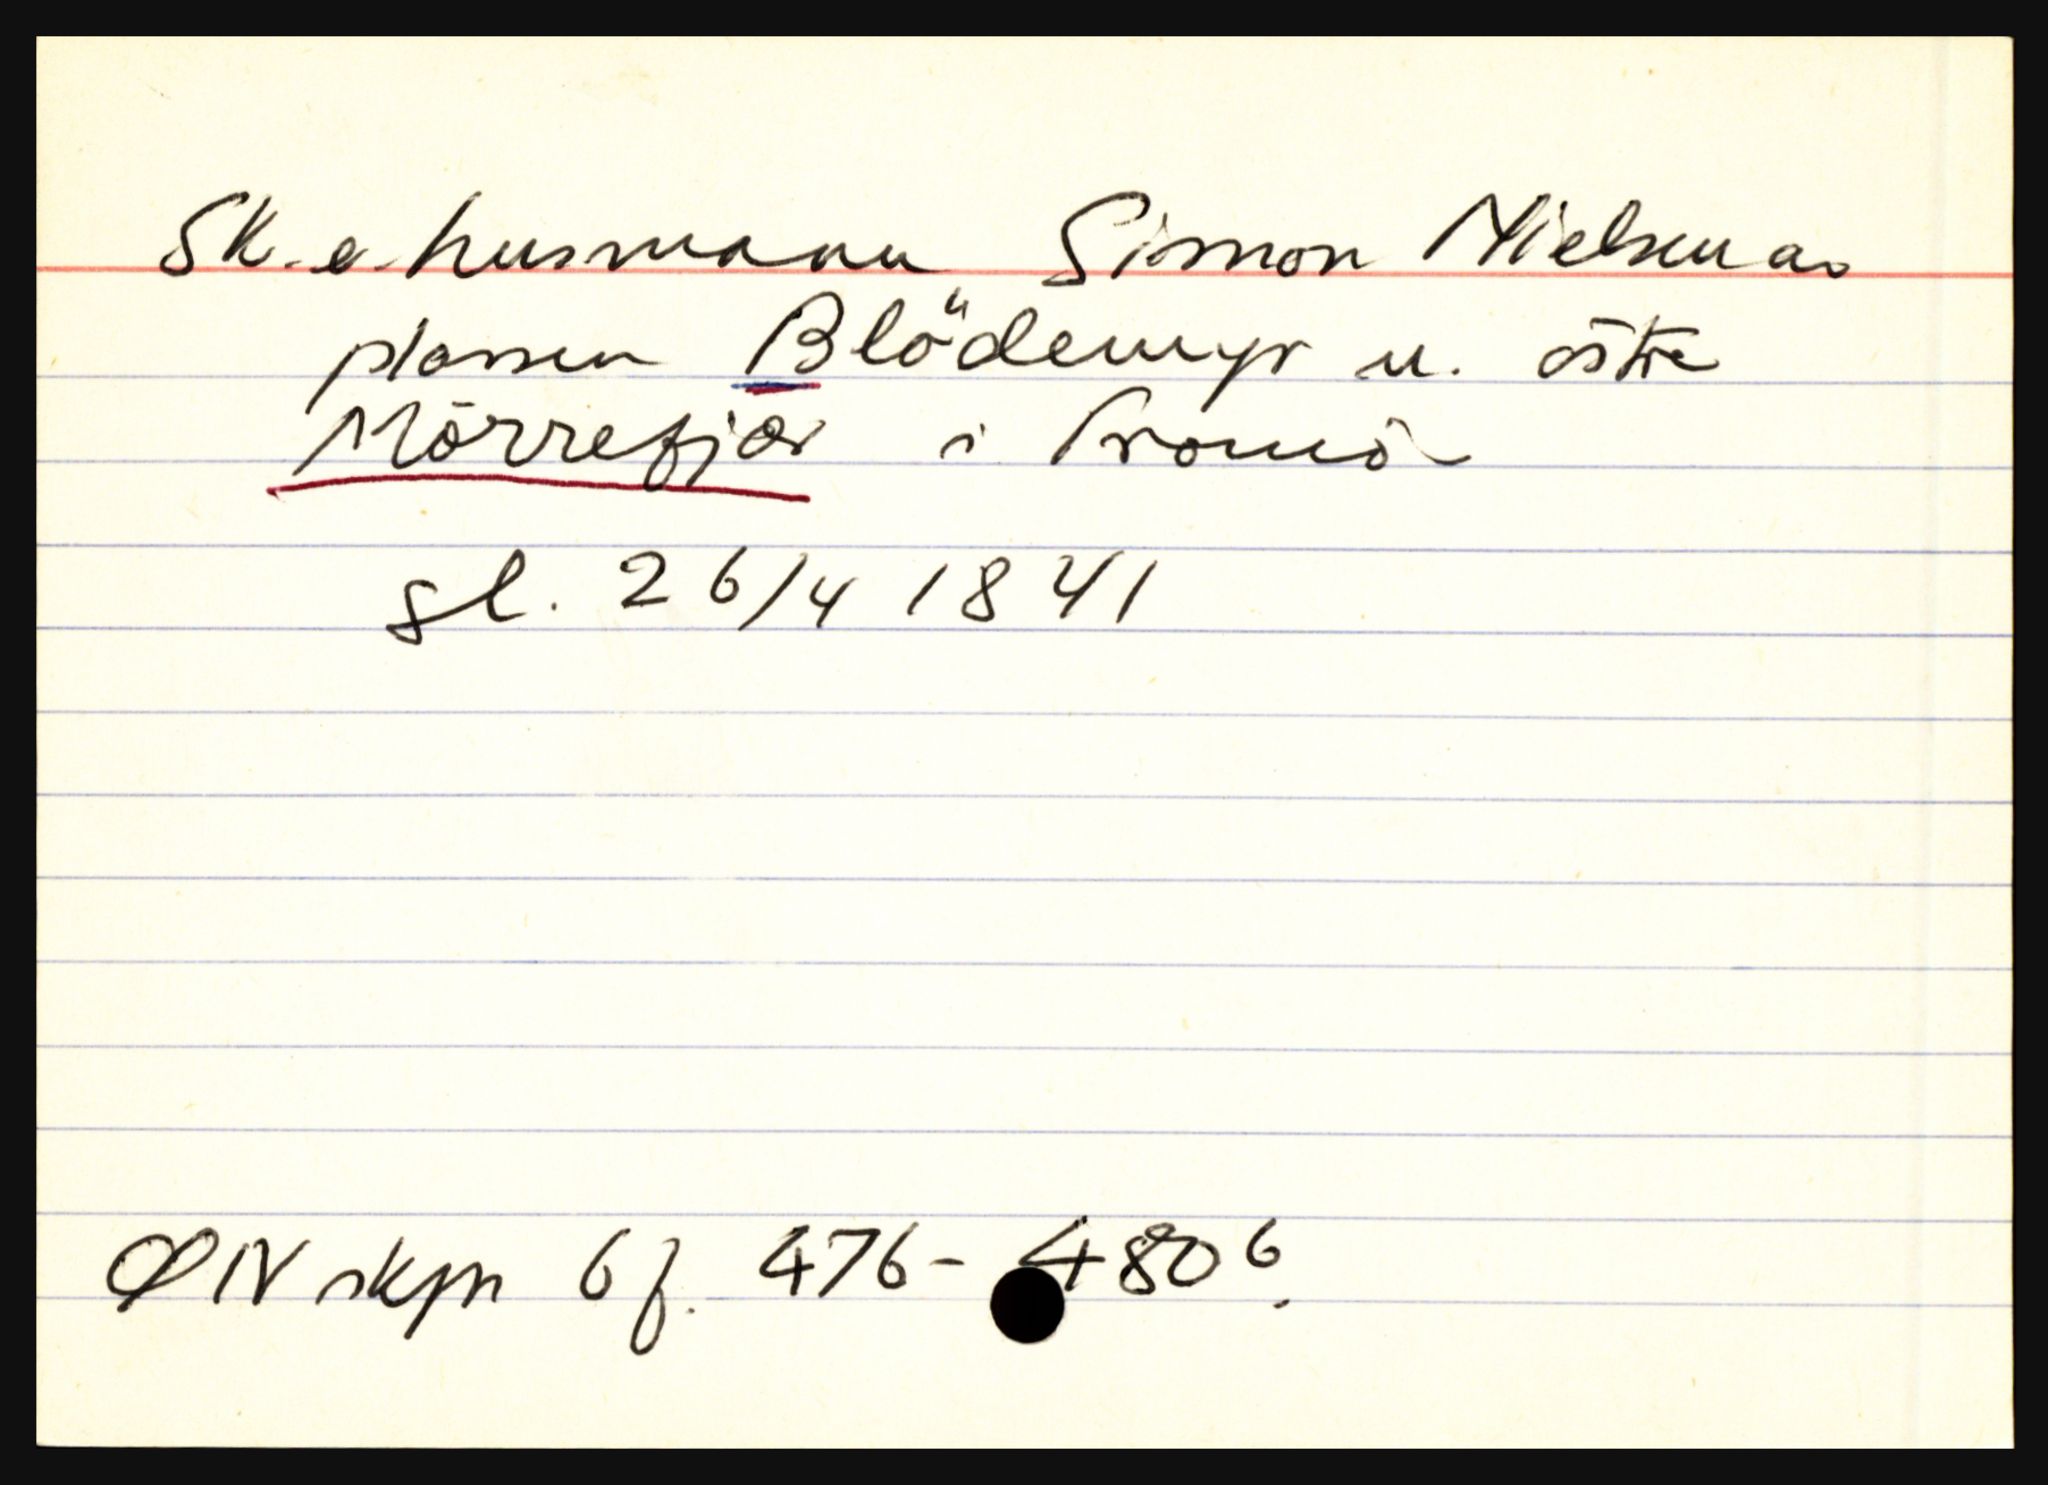 Sk. e. husmann Simon Nielsen av
plassen Blödemyr u. östre
Mörrefjær i Tromö
gl. 26/4 1841
Ø IV skpr 6 f. 476 - 480 b.